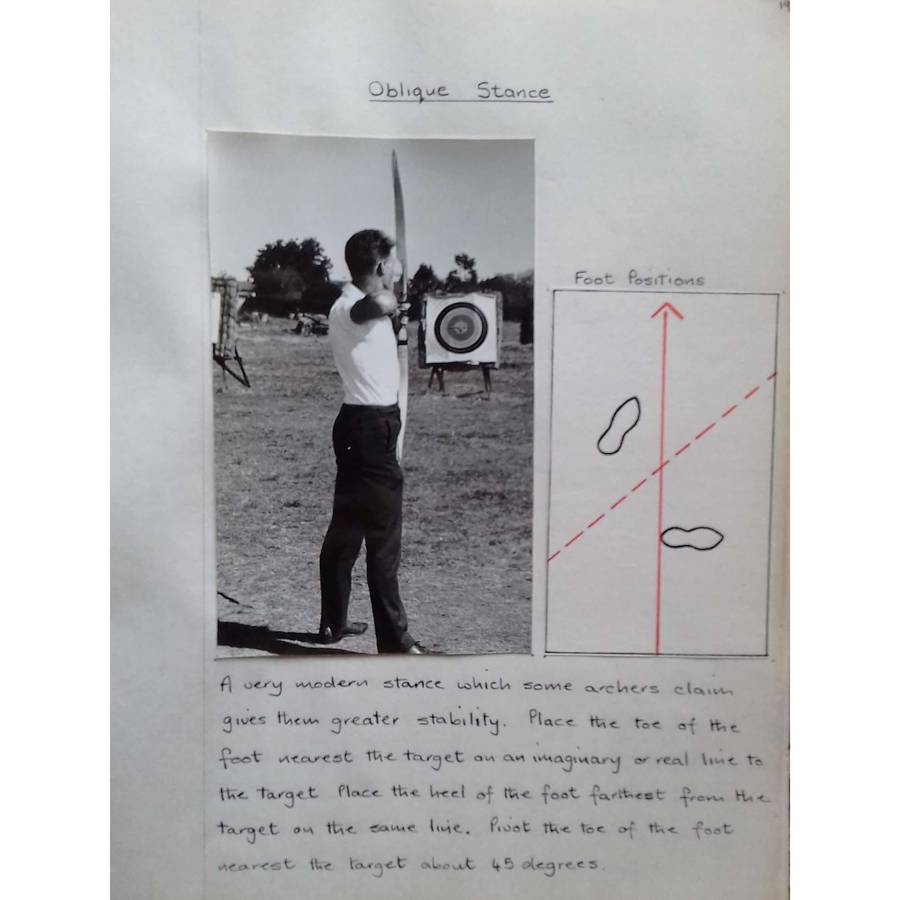 19
Oblique Stance
Foot Positions
A very modern stance which some archers claim
gives them greater stability. Place the toe of the
foot nearest the target on an imaginary or real line to
the target Place the heel of the foot farthest from the
target on the same line. Pivot the toe of the foot
nearest the target about 45 degrees.